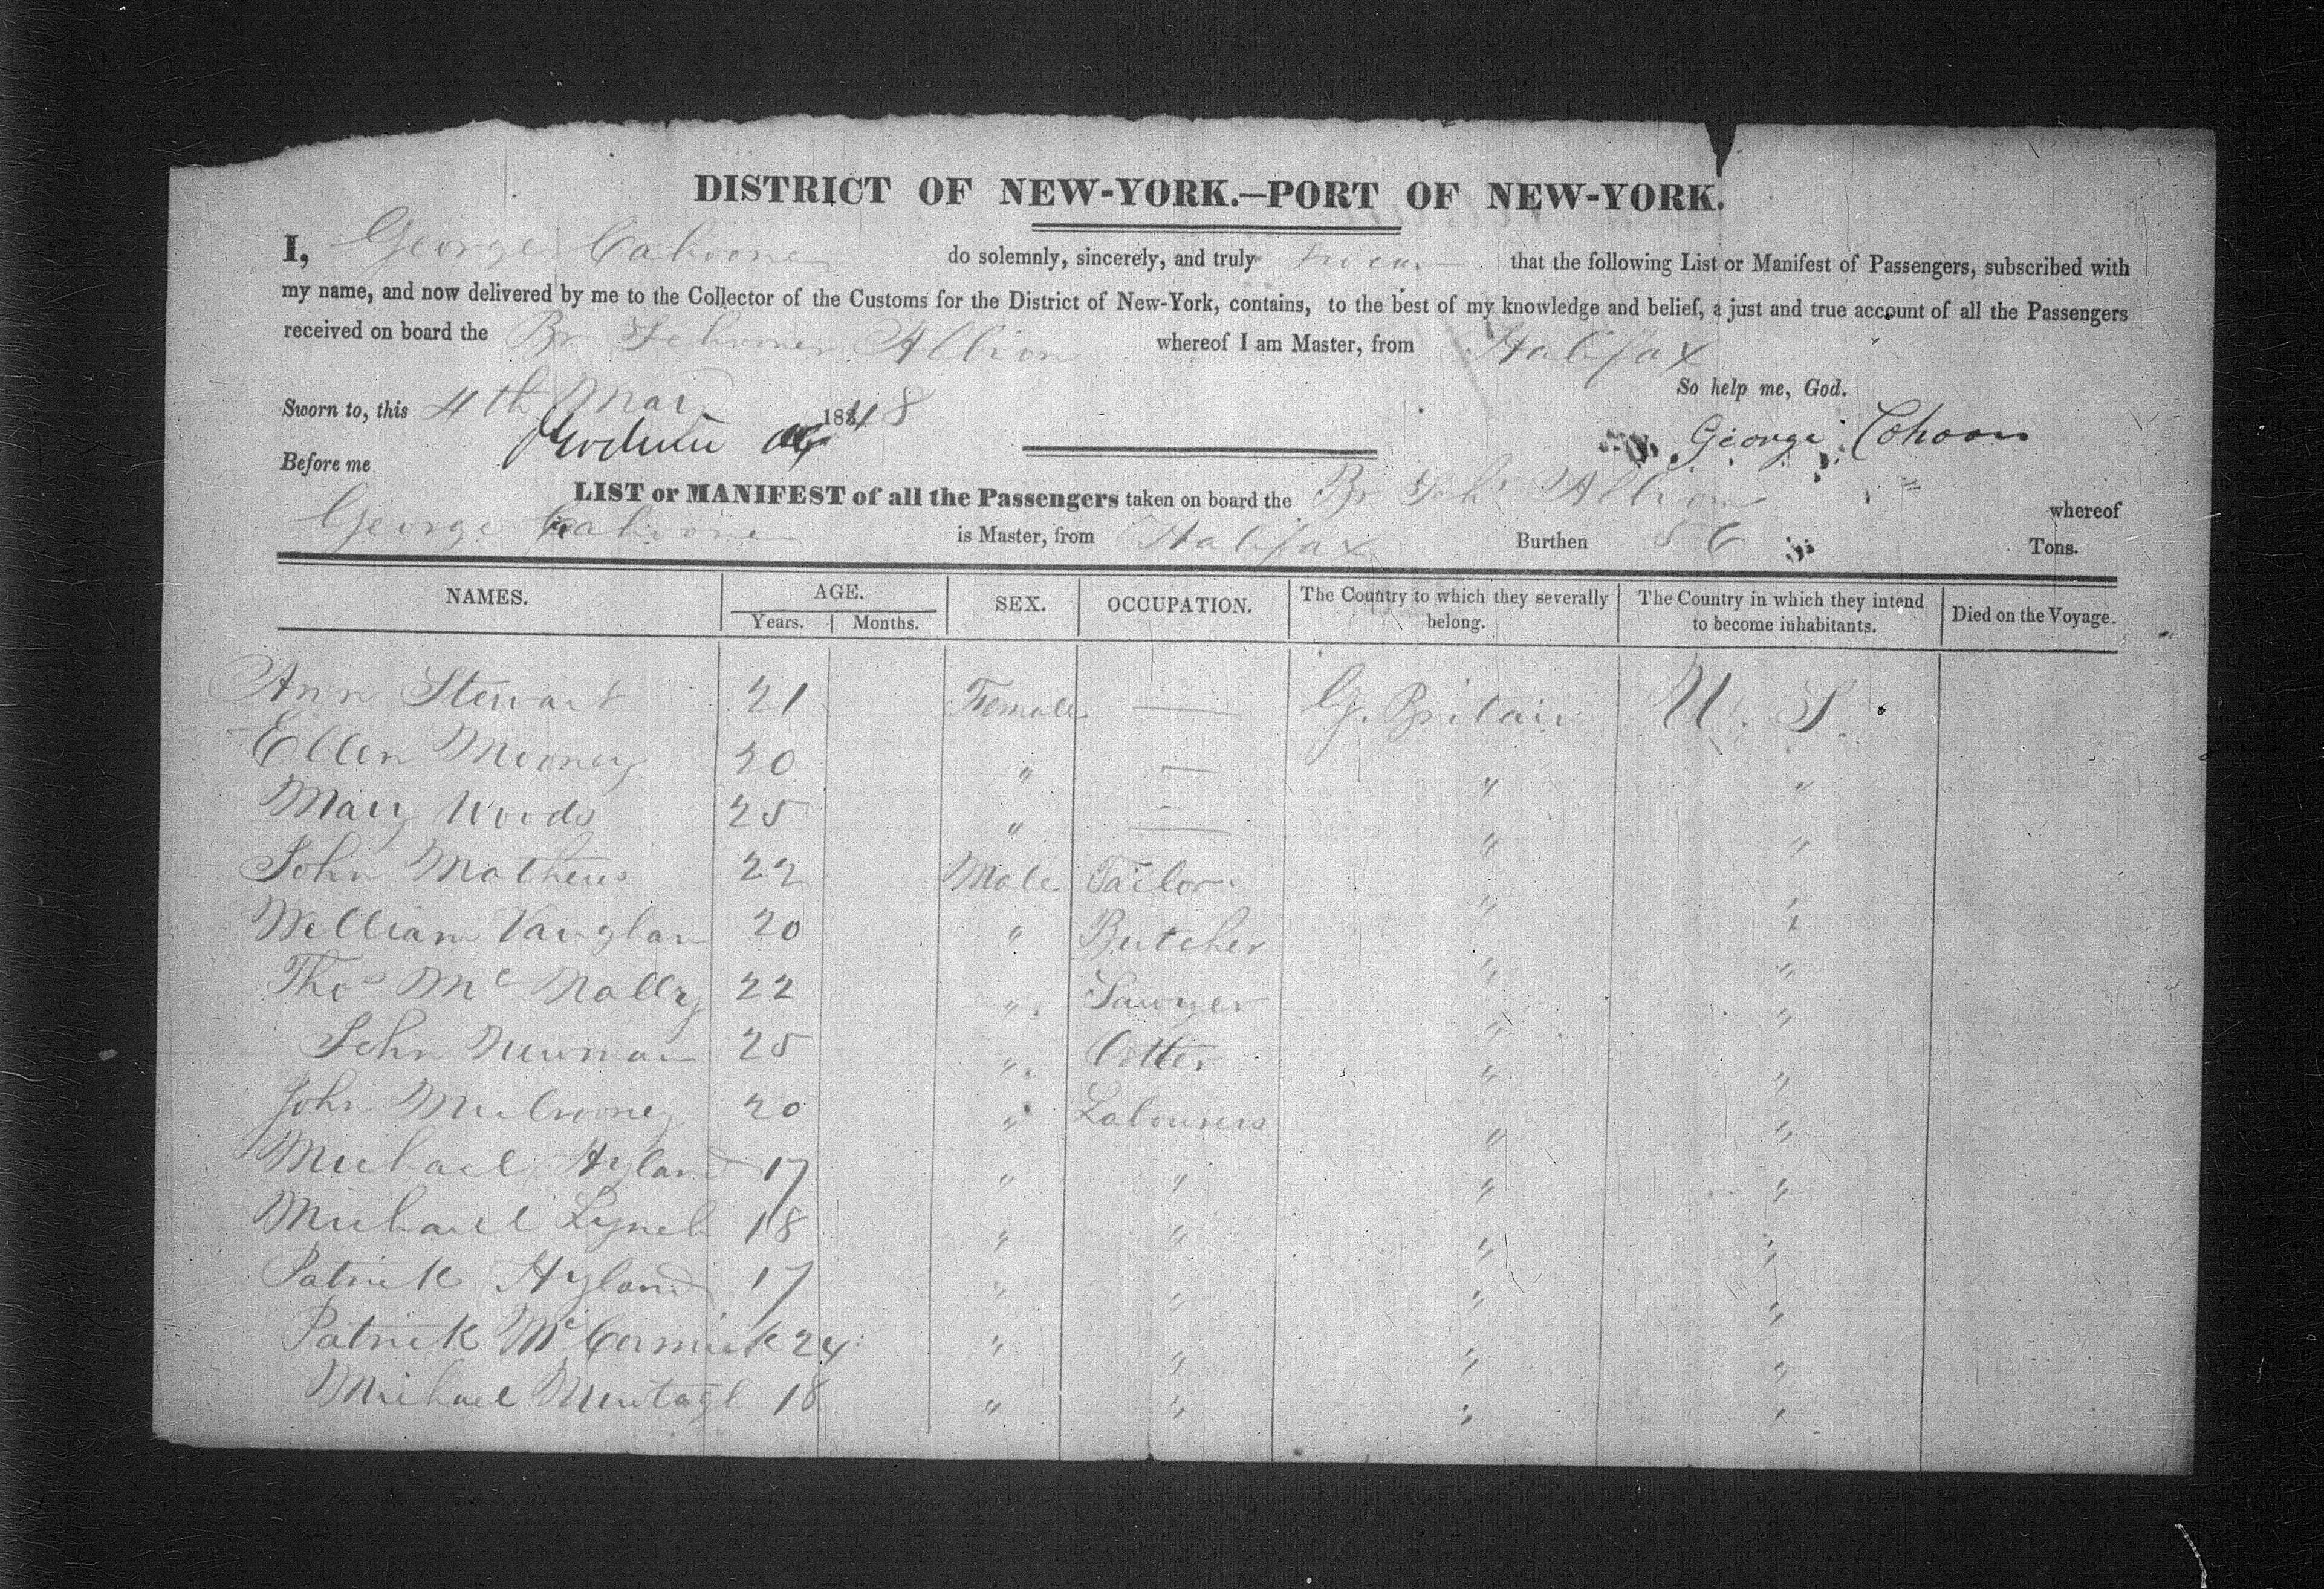 DISTRICT OF NEW-YORK.—PORT OF NEW-YORK.
I, George Cahoone do solemnly, sincerely, and truly swear that the following List or Manifest of Passengers, subscribed with
my name, and now delivered by me to the Collector of the Customs for the District of New-York, contains, to the best of my knowledge and belief, a just and true account of all the Passengers
received on board the Br Schooner Albion whereof I am Master, from Halifax
So help me, God.
Sworn to, this 4th May 1848
George Cohoon
Before me
LIST or MANIFEST of all the Passengers taken on board the Br Schr Albion whereof
George Cahoone is Master, from Halifax Burthen 56 Tons.
NAMES. AGE. SEX. OCCUPATION. The Country to which they severally belong. The Country in which they intend to become inhabitants. Died on the Voyage.
Years. Months.
Ann Stewart 21 Female — G. Britain U. S.
Ellen Mooney 20 " — " "
Mary Woods 25 " — " "
John Mathews 22 Male Tailor " "
William Vaughan 20 " Butcher " "
Thos Mc Nally 22 " Sawyer " "
John Newman 25 " " "
John Mulrooney 20 " Labourers " "
Michael Hyland 17 " " " "
Michael Lynch 18 " " " "
Patrick Hyland 17 " " " "
Patrick McCormick 24 " " " "
Michael Murtagh 18 " " " "